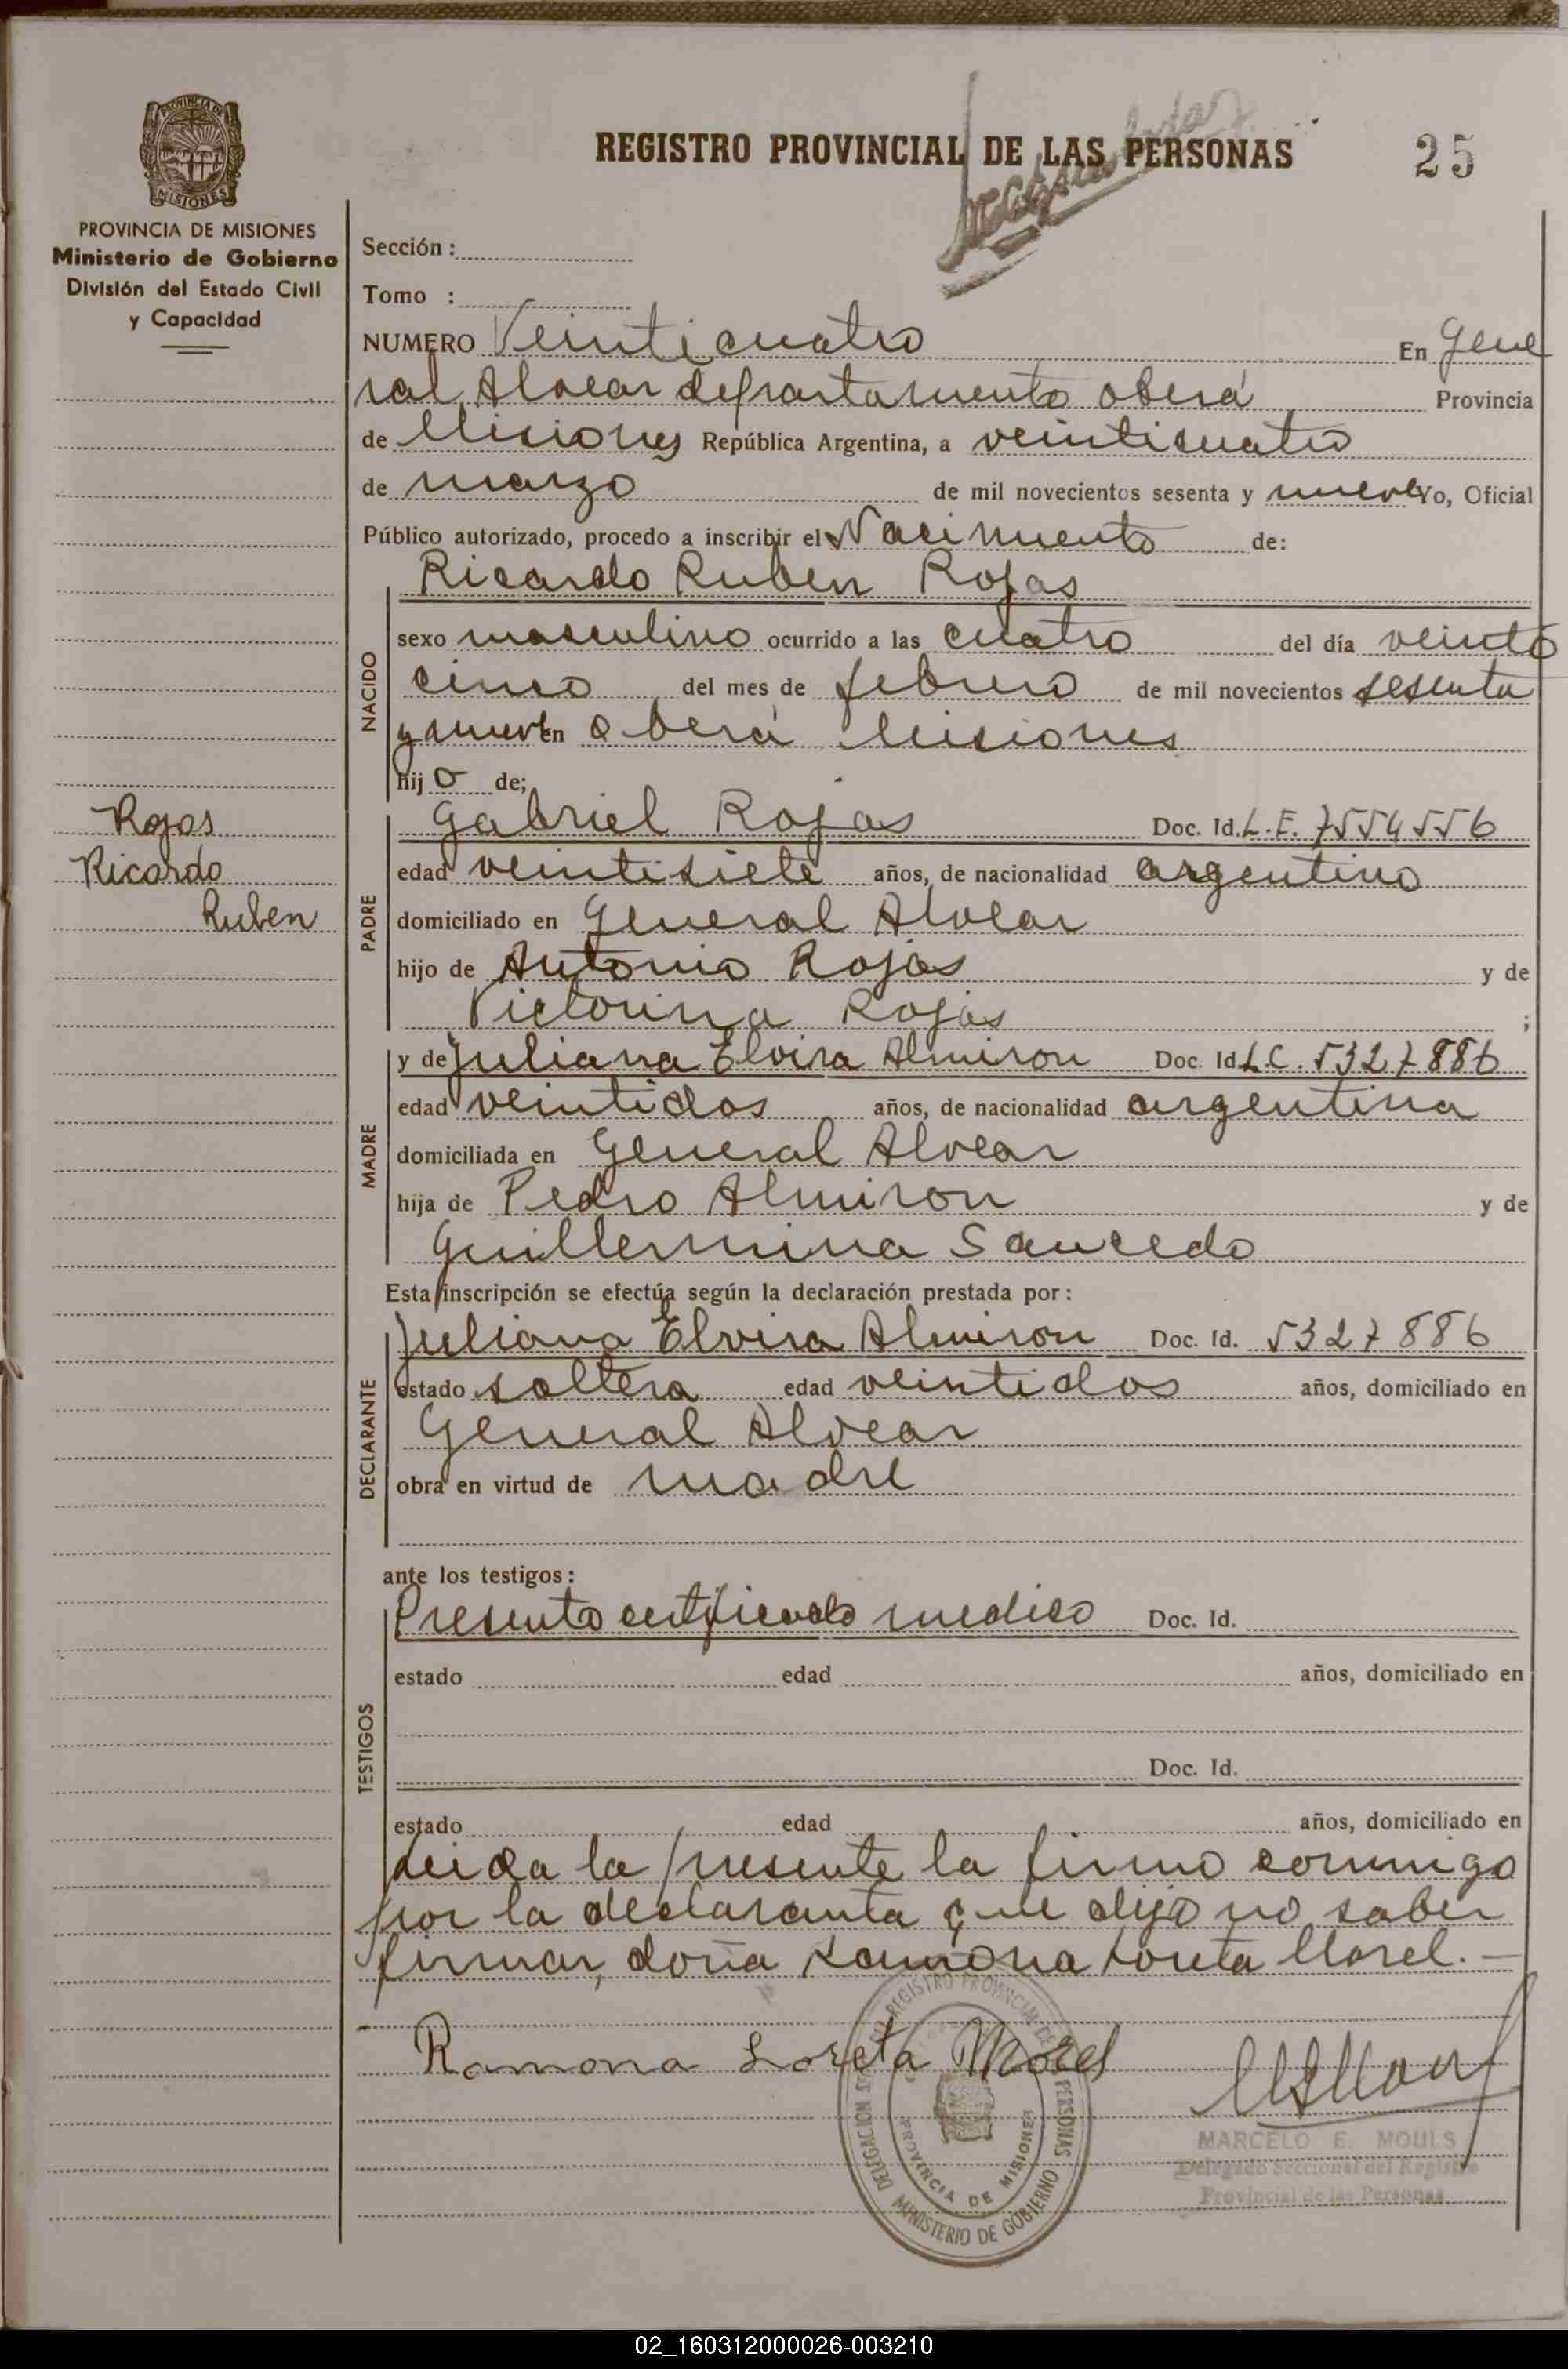 REGISTRO PROVINCIAL DE LAS PERSONAS
25
PROVINCIA DE
MISIONES
PROVINCIA DE MISIONES
Ministerio de Gobierno
División del Estado Civil
y Capacidad
Sección :
Tomo :
NUMERO Veinticuatro En Gene
ral Alvear departamento Oberá Provincia
de Misiones República Argentina, a veinticuatro
de marzo de mil novecientos sesenta y nueve Yo, Oficial
Público autorizado, procedo a inscribir el Nacimiento de:
Ricardo Ruben Rojas
NACIDO
sexo masculino ocurrido a las cuatro del día veinti
cinco del mes de febrero de mil novecientos sesenta
y nueve en Oberá Misiones
hij o de;
Rojas
Ricardo
Ruben
PADRE
Gabriel Rojas Doc. Id. L.E. 7554556
edad veintisiete años, de nacionalidad argentino
domiciliado en General Alvear
hijo de Antonio Rojas y de
Victorina Rojas ;
MADRE
y de Juliana Elvira Almiron Doc. Id. L.C. 5327886
edad veintidos años, de nacionalidad argentina
domiciliada en General Alvear
hija de Pedro Almiron y de
Guillermina Saucedo
Esta inscripción se efectúa según la declaración prestada por :
DECLARANTE
Juliana Elvira Almiron Doc. Id. 5327886
estado soltera edad veintidos años, domiciliado en
General Alvear
obra en virtud de madre
ante los testigos :
TESTIGOS
Presento certificado medico Doc. Id.
estado edad años, domiciliado en
Doc. Id.
estado edad años, domiciliado en
Leida la presente la firma conmigo
por la declaranta que dijo no saber
firmar, doña Ramona Loreta Morel.-
Ramona Loreta Morel
REGISTRO PROVINCIAL DE LAS PERSONAS
PROVINCIA DE MISIONES
MINISTERIO DE GOBIERNO
MARCELO E. MOULS
Delegado Seccional del Registro
Provincial de las Personas
02_160312000026-003210